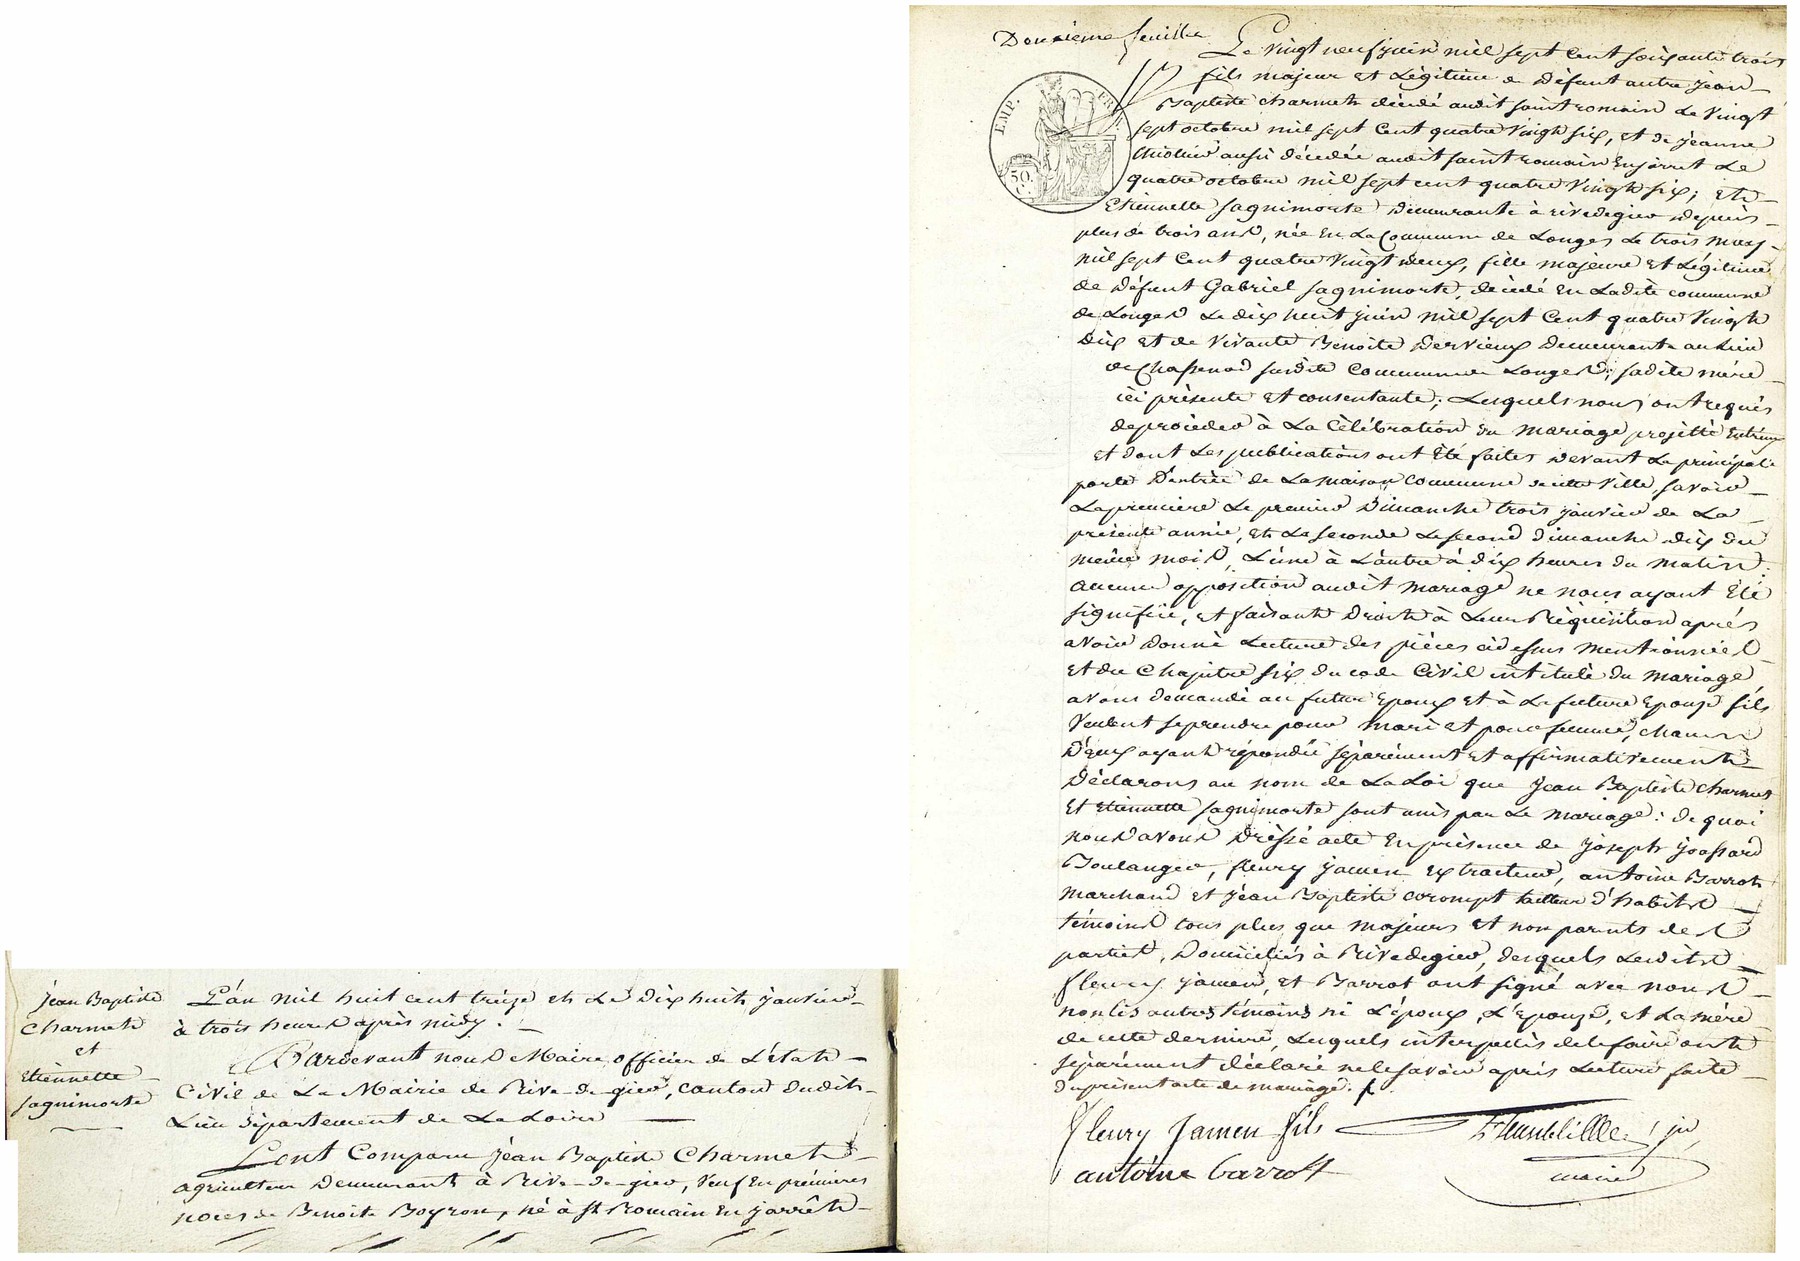 jean Baptiste
Charmet
et
Etiennette
sagnimorte
L'an mil huit cent treize et Le Dix huit janvier
à trois heures après midy.
Pardevant nous Maire, officier de L'état
Civil de La Mairie de Rive-de-gier, canton dudit
Lieu département de La Loire
Sont Comparu jean Baptiste Charmet
agriculteur Demeurant à Rive-de-gier, veuf En premières
noces de Benoite Boyron, né à st Romain En jarrêt
Douzième feuille
Le vingt neuf juin mil sept cent soixante trois
fils majeur et Légitime de Défunt autre jean
Baptiste Charmet décédé audit saint romain Le vingt
sept octobre mil sept cent quatre vingt six, et de jeanne
aussi décédée audit saint romain En jarret Le
quatre octobre mil sept cent quatre vingt six; Et
Etiennette sagnimorte Demeurante à rivedegier depuis
plus de trois ans, née En La Commune de Longes Le trois mars
mil sept Cent quatre vingt deux, fille majeure et Légitime
de Défunt Gabriel sagnimorte, décédé En Ladite commune
de Longes Le dix huit juin mil sept Cent quatre vingt
Dix et de vivante Benoite Dervieux Demeurante au Lieu
de Chassenod susdite Commune de Longes; sadite mère
ici présente et consentante; Lesquels nous ont requis
de procéder à La Célébration du mariage projetté Entreux
et dont Les publications ont Eté faites devant La principale
porte D'entrée de La maison Commune de cette ville, savoir
La première Le premier Dimanche trois janvier de La
présente année, et La seconde Le second Dimanche dix du
même mois, L'une à L'autre à dix heures du matin:
aucune opposition audit mariage ne nous ayant Eté
signifiée, et faisant Droit à Leur Réquisition après
avoir Donné Lecture des pièces cidessus mentionnées
et du Chapitre six du code Civil intitulé du mariage
avons demandé au futur Epoux et à La future Epouse s'ils
veulent se prendre pour mari et pour femme, chacun
D'eux ayant répondu séparément et affirmativement
Déclarons au nom de La Loi que jean Baptiste Charmet
et Etiennette sagnimorte sont unis par Le mariage: de quoi
nous avons Dressé acte En présence de joseph joassard
Boulanger, fleury jamen Extracteur, antoine Barrot
marchand et jean Baptiste corompt tailleur d'habits
témoins tous plus que majeurs et non parents des
parties, Domiciliés à Rivedegier, desquels Lesdits
fleury jamen, et Barrot ont signé avec nous
non Les autres témoins ni L'époux, L'Epouse, et La mère
de cette dernière, Lesquels interpellés de le faire ont
séparément déclaré ne le savoir après Lecture faite
du présent acte de mariage.
fleury jamen fils
antoine barrott
maire
EMP. FR.
50. C.